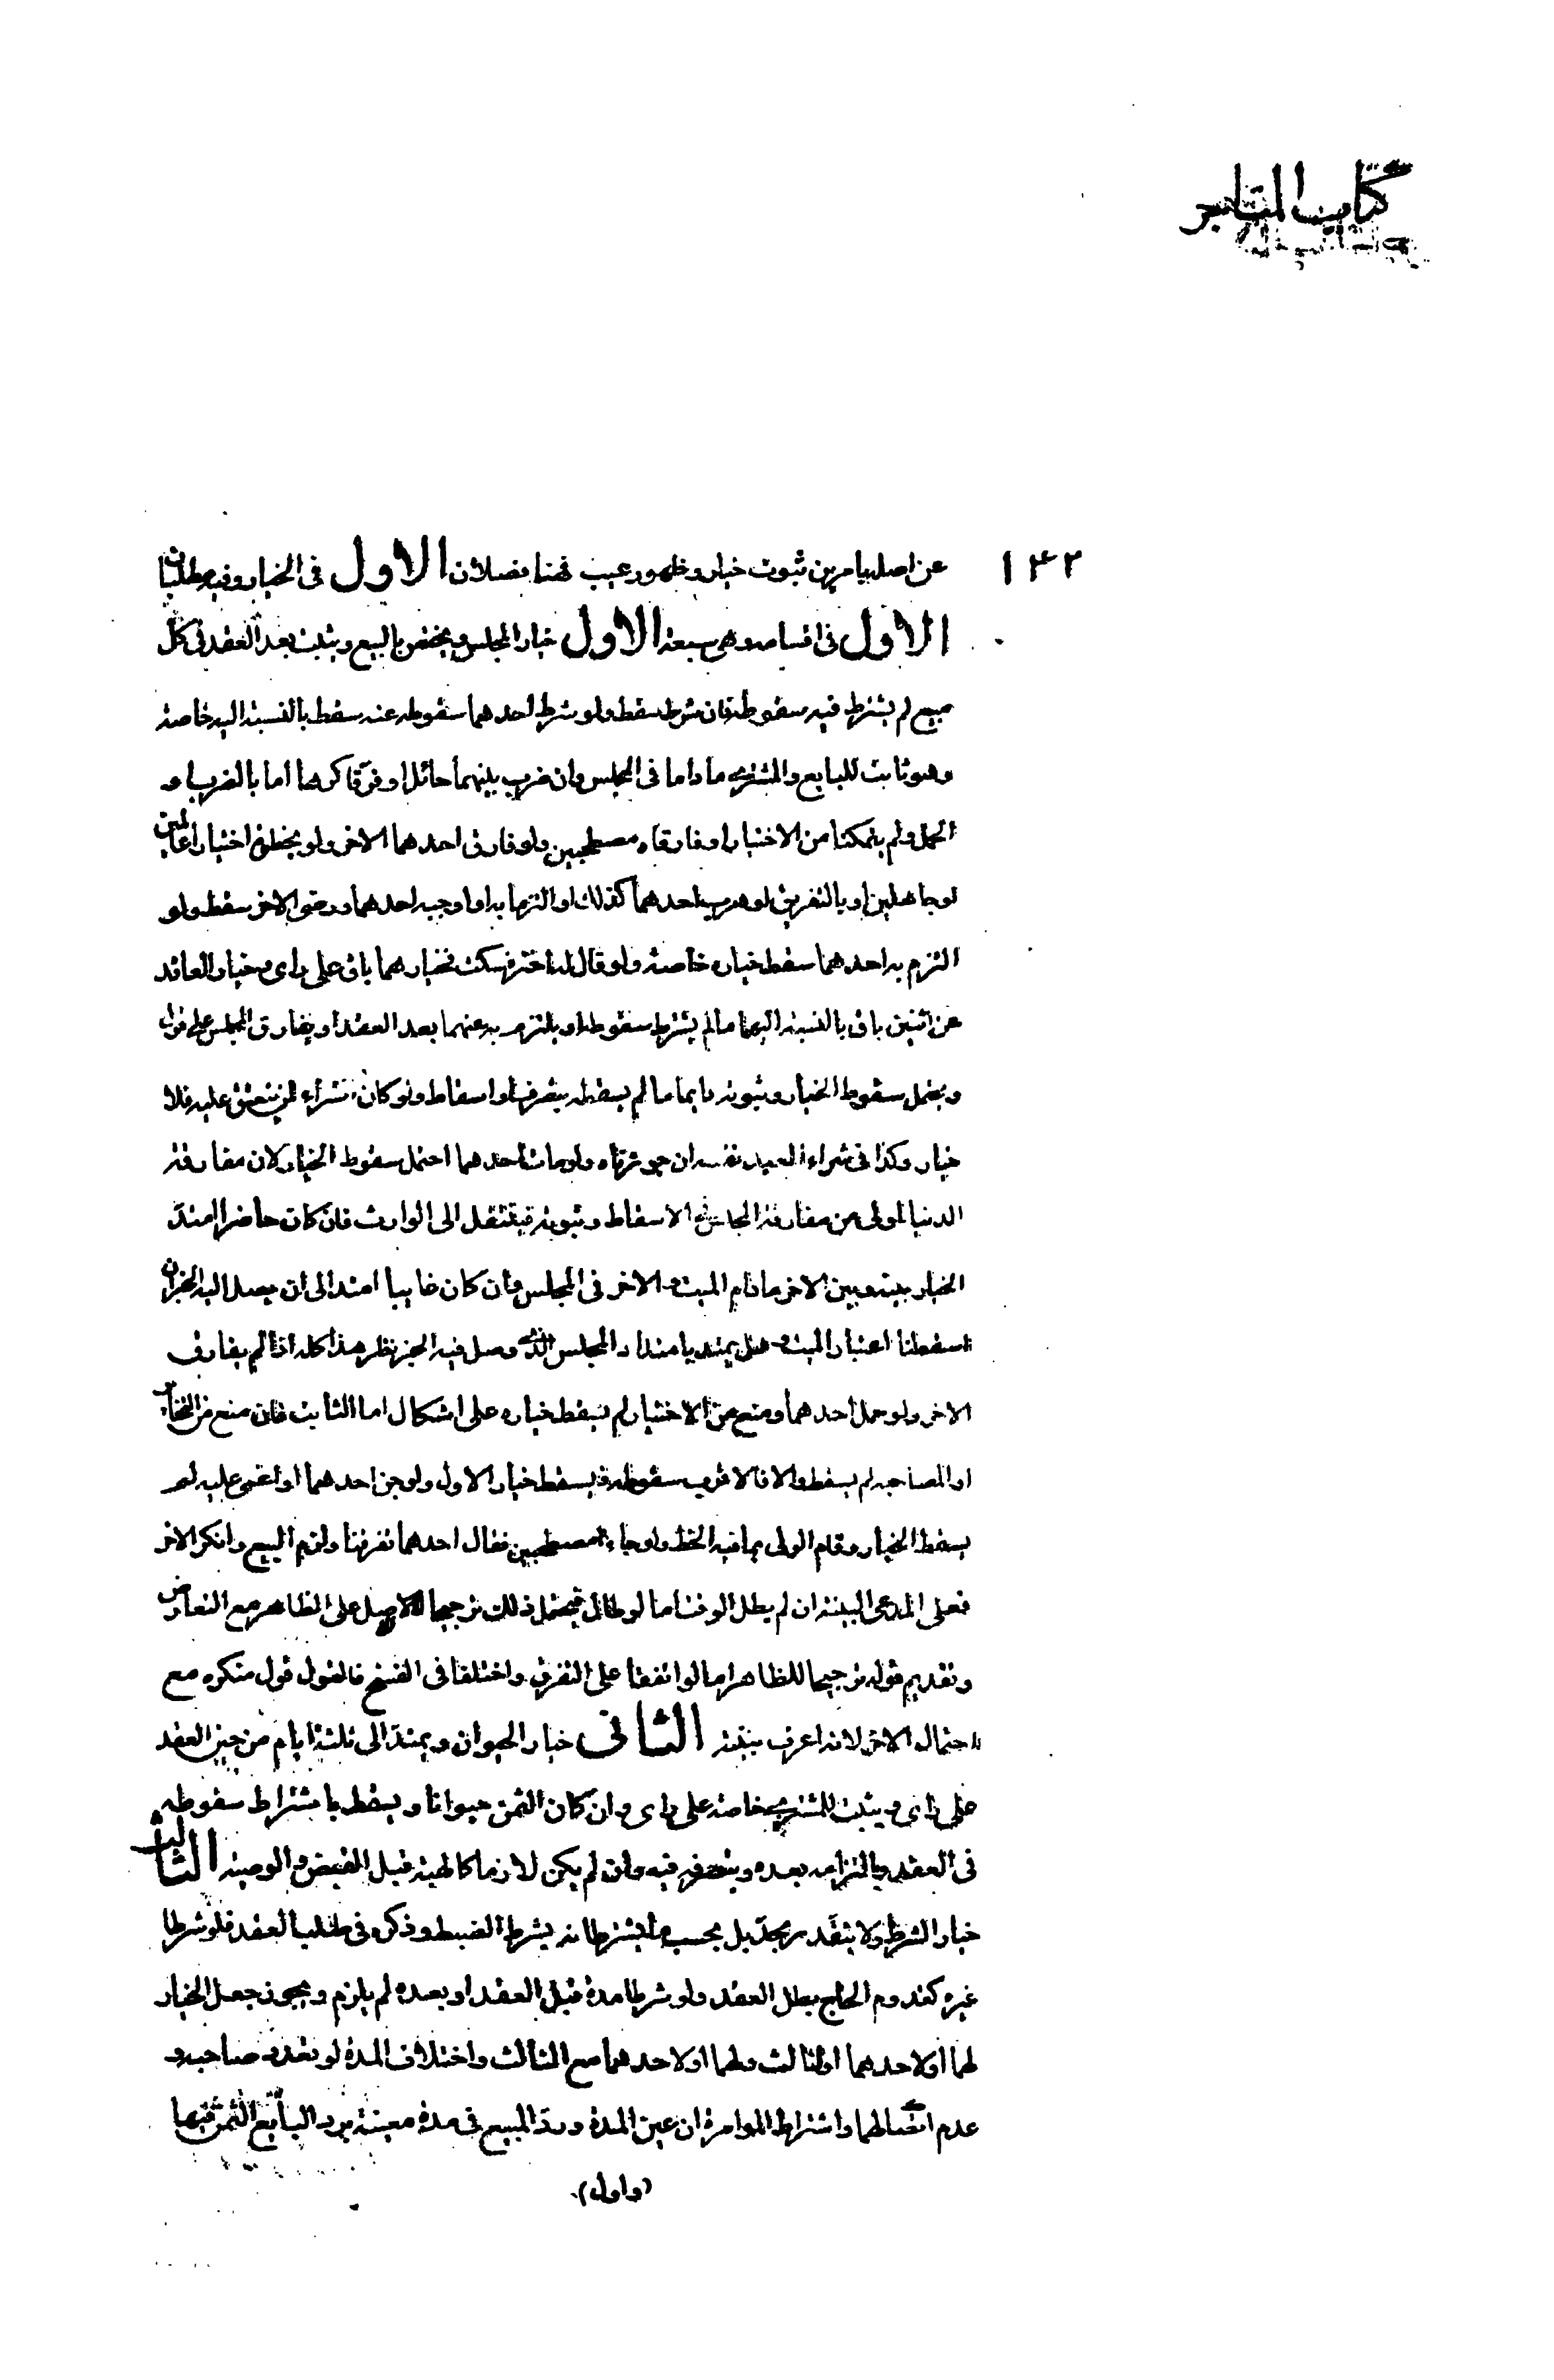 كتاب المتاجر
١٤٢
عن اصله بامرين ثبوت خيار وظهور عيب فهنا فصلان الاول فى الخيار وفيه مطلبان
الاول فى اقسامه وهى سبعة الاول خيار المجلس ويختص بالبيع ويثبت بعد العقد فى كل
مبيع لم يشترط فيه سقوطه فان شرط سقط ولو شرط احدهما سقوطه عنه سقط بالنسبة اليه خاصة
وهو ثابت للبايع والمشترى ماداما فى المجلس وان ضرب بينهما حائل او فرّقا كرها اما بالضرب او
الحمل ولم يتمكنا من الاختيار او فارقاه مصطحبين ولو فارق احدهما الاخر ولو بخطوة اختيارا عالمين
او جاهلين او بالتفريق او هرب احدهما كذلك او التزما به او اوجبه احدهما ورضى الاخر سقط ولو
التزم به احدهما سقط خياره خاصة ولو قال له اختر فسكت فخيارهما باق على راى وخيار العاقد
عن اثنين باق بالنسبة اليهما ما لم يشترط سقوطه او يلتزم به عنهما بعد العقد او يفارق المجلس على قول
ويحتمل سقوط الخيار وثبوته دايما ما لم يسقطه بتصرف او اسقاط ولو كان لشراء من ينعتق عليه فلا
خيار وكذا فى شراء العبد نفسه ان جوزناه ولو مات احدهما احتمل سقوط الخيار لان مفارقة
الدنيا اولى من مفارقة المجلس فى الاسقاط وثبوته فينتقل الى الوارث فان كان حاضرا امتدّ
الخيار بينه وبين الاخر مادام الميت والاخر فى المجلس وان كان غايبا امتد الى ان يصل اليه الخبر ان
اسقطنا اعتبار الميت وهل يمتد بامتداد المجلس الذى وصل فيه الخبر نظر هذا كله اذا لم يفارق
الاخر ولو حمل احدهما ومنع من الاختيار لم يسقط خياره على اشكال اما الثابت فان منع من التخاير
او المصاحبه لم يسقط والا فالاقرب سقوطه فيسقط خيار الاول ولو جن احدهما او اغمى عليه لم
يسقط الخيار وقام الولى بما فيه الحظ ولو جاءا مصطحبين فقال احدهما تفرقنا ولزم البيع وانكر الاخر
فعلى المدعى البينة ان لم يطل الوقت اما لو طال فيحتمل ذلك ترجيحا للاصل على الظاهر مع التعارض
وتقديم قوله ترجيحا للظاهر اما لو اتفقا على التفرق واختلفا فى الفسخ فالقول قول منكره مع
احتمال الاخر لانه اعرف بنيّته الثانى خيار الحيوان ويمتدّ الى ثلثة ايام من حين العقد
على راى ويثبت للمشترى خاصة على راى وان كان الثمن حيوانا ويسقط باشتراط سقوطه
فى العقد وبالتزامه بعده وبتصرفه فيه وان لم يكن لازما كالهبة قبل القبض والوصية الثالث
خيار الشرط ولا يتقدر بحدّ بل بحسب ما يشترطانه بشرط الضبط وذكره فى صلب العقد فلو شرطا
غيره كقدوم الحاج بطل العقد ولو شرطا مدة قبل العقد او بعده لم يلزم ويجوز جعل الخيار
لهما اولاحدهما اولثالث ولهما اولاحدهما مع الثالث واختلاف المدة لو تعدد صاحبه و
عدم اتصالها واشتراط المؤامرة ان عين المدة وردّ المبيع فى مدة معينة برد البايع الثمن فيها
(واول)